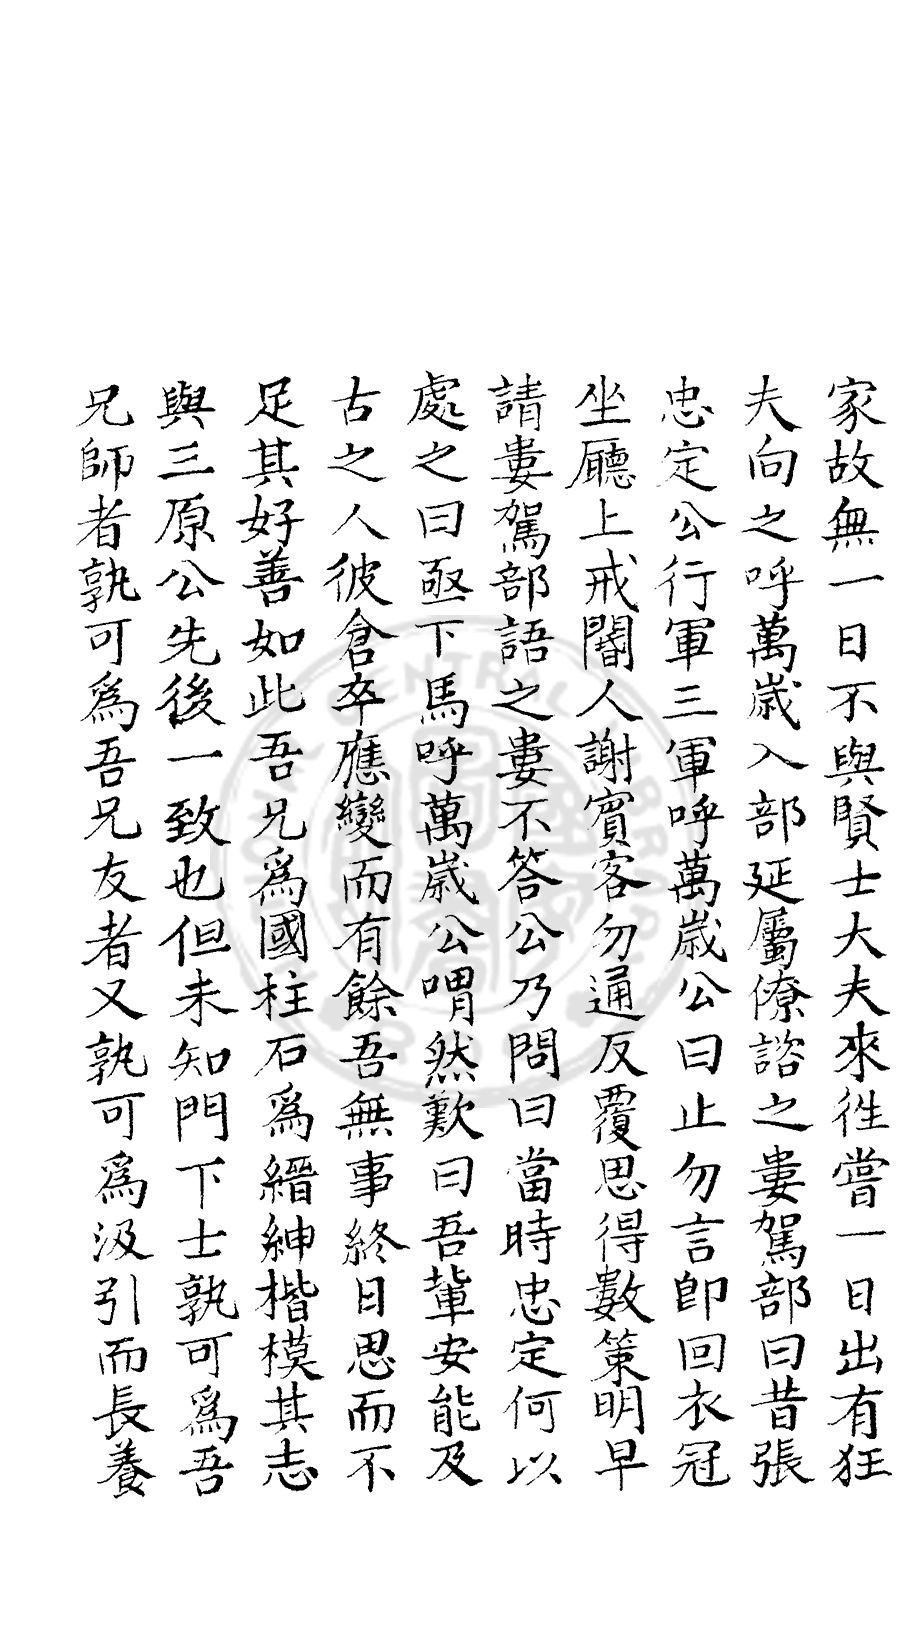 家故無一日不與賢士大夫來徃嘗一日出有狂
夫向之呼萬歳入部延屬僚諮之婁駕部曰昔張
忠定公行軍三軍呼萬歳公曰止勿言卽回衣冠
坐廳上戒閽人謝賓客勿通反覆思得數策明早
請婁駕部語之婁不答公乃問曰當時忠定何以
處之曰亟下馬呼萬歳公喟然歎曰吾輩安能及
古之人彼倉卒應變而有餘吾無事終日思而不
足其好善如此吾兄爲國柱石爲縉紳楷模其志
與三原公先後一致也但未知門下士孰可爲吾
兄師者孰可爲吾兄友者又孰可爲汲引而長養